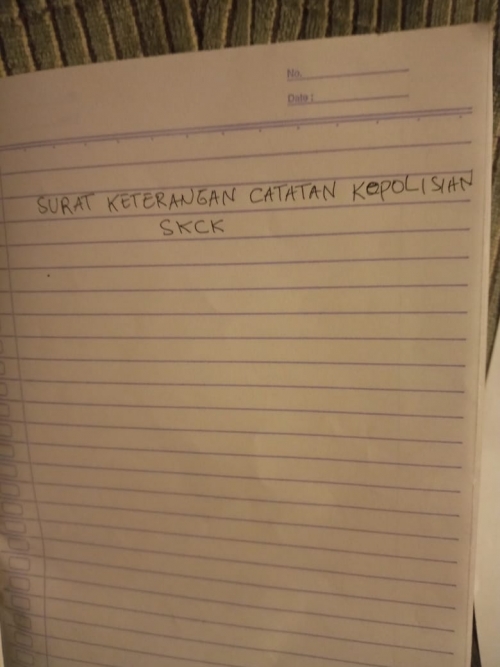 No.
Date :
SURAT KETERANGAN CATATAN KePOLISIAN
SKCK